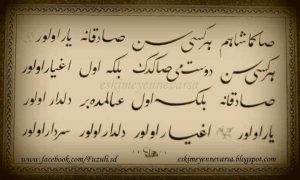 صانما شاهم هركسی سن صادقانه یار اولور
هركسی سن دوست می صاندك بلكه اول اغیار اولور
صادقانه بلكه اول عالمده بر دلدار اولور
یار اولور اغیار اولور دلدار اولور سردار اولور
eskimeyennevarsa
www.facebook.com/Fuzuli.sd
eskimeyennevarsa.blogspot.com